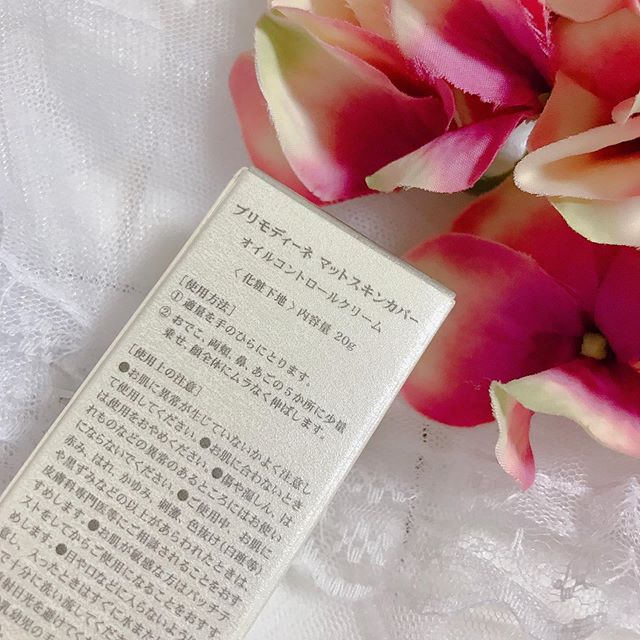 プリモディーネ マットスキンカバー
オイルコントロールクリーム
〈化粧下地〉内容量 20g
［使用方法］
①適量を手のひらにとります。
②おでこ、両頬、鼻、あごの5か所に少量
乗せ、顔全体にムラなく伸ばします。
［使用上の注意］
●お肌に異常が生じていないかよく注意し
て使用してください。●お肌に合わないとき
は使用をおやめください。●傷や湿しん、は
れものなどの異常のあるところにはお使い
にならないでください。●使用中、お肌に
赤み、はれ、かゆみ、刺激、色抜け(白斑等)
や黒ずみなどの以上があらわれるときは、
皮膚科専門医等にご相談されることをおす
すめします。●お肌が敏感な方はパッチテ
ストをしてからご使用になることをおすす
めします。●目や口などに入らないよう
入ったときはすぐに水また
十分に洗い流してくだ
日光を避けて
乳幼児の手